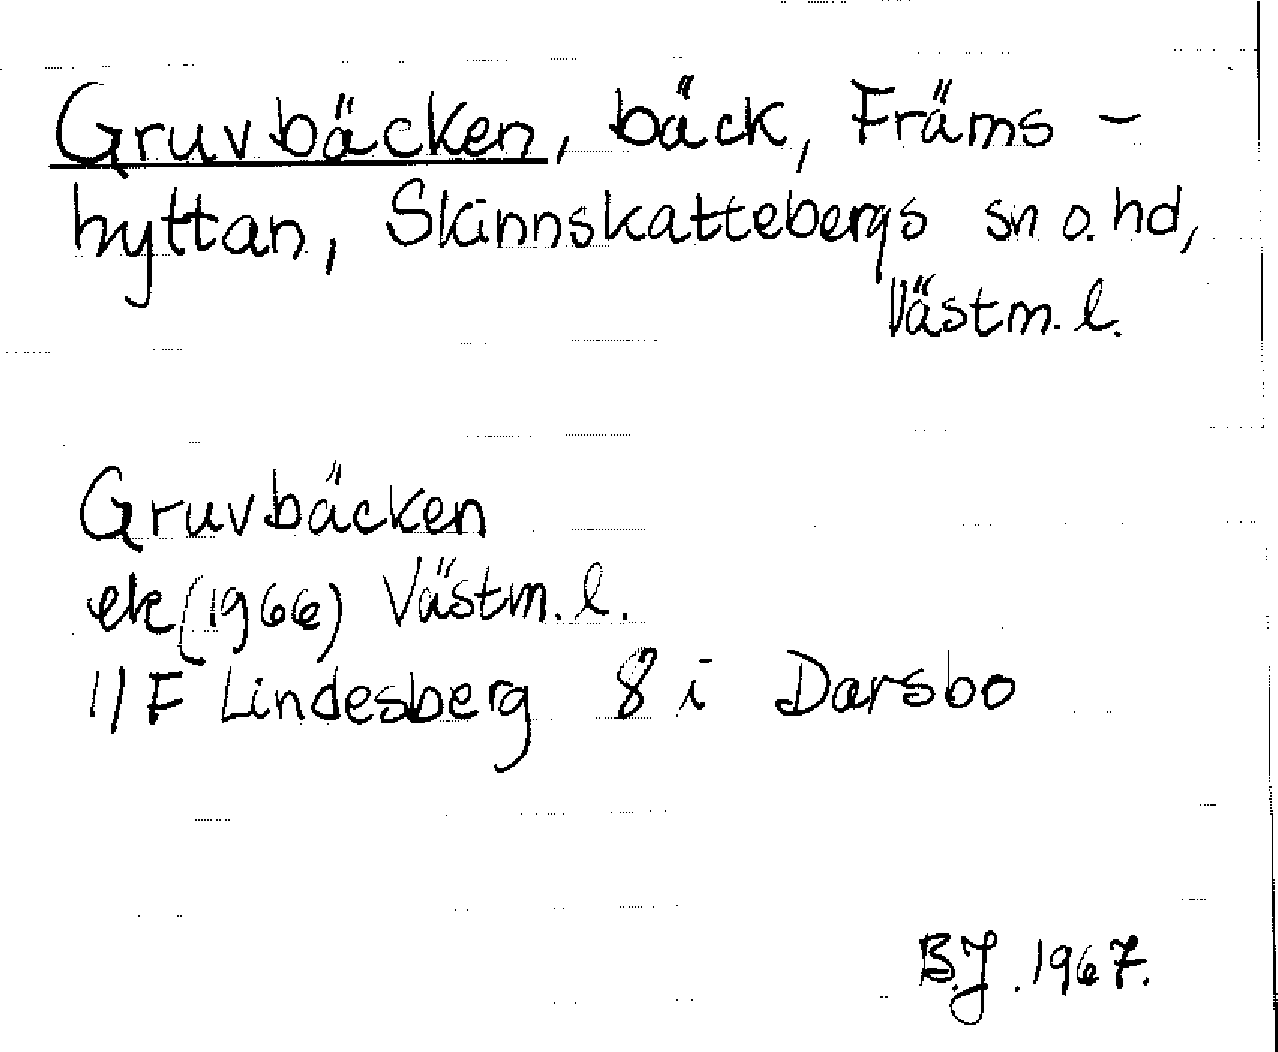 Gruvbäcken, bäck, Främs-
hyttan, Skinnskattebergs sn o. hd,
Västm. l.
Gruvbäcken
ek (1966) Västm. l.
11F Lindesberg 8 i Darsbo
B.J. 1967.